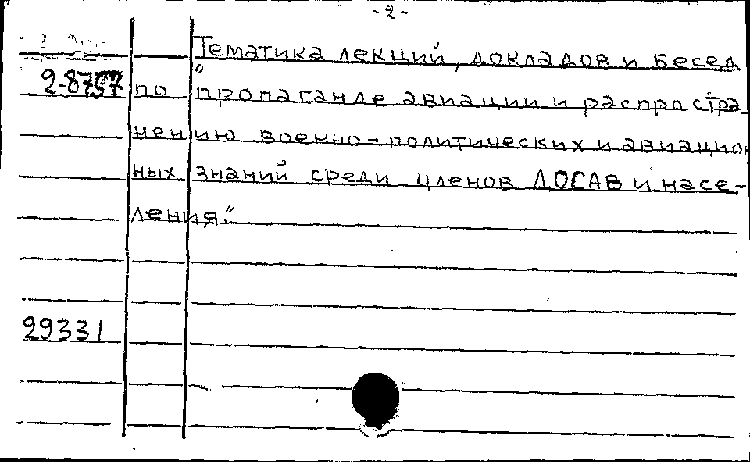 -2-
Тематика лекций, докладов и бесед
2-8757 по "пропаганде авиации и распростра-
нению военно-политических и авиацион
ных знаний среди членов ДОСАВ и насе-
ления."
29331